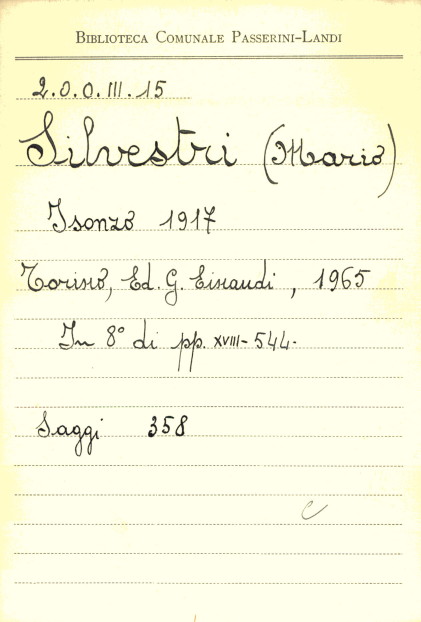 BIBLIOTECA COMUNALE PASSERINI-LANDI
2.0.0.III.15
Silvestri (Mario)
Isonzo 1917
Torino, Ed. G. Einaudi, 1965
In 8° di pp. XVIII-544.
Saggi 358
C